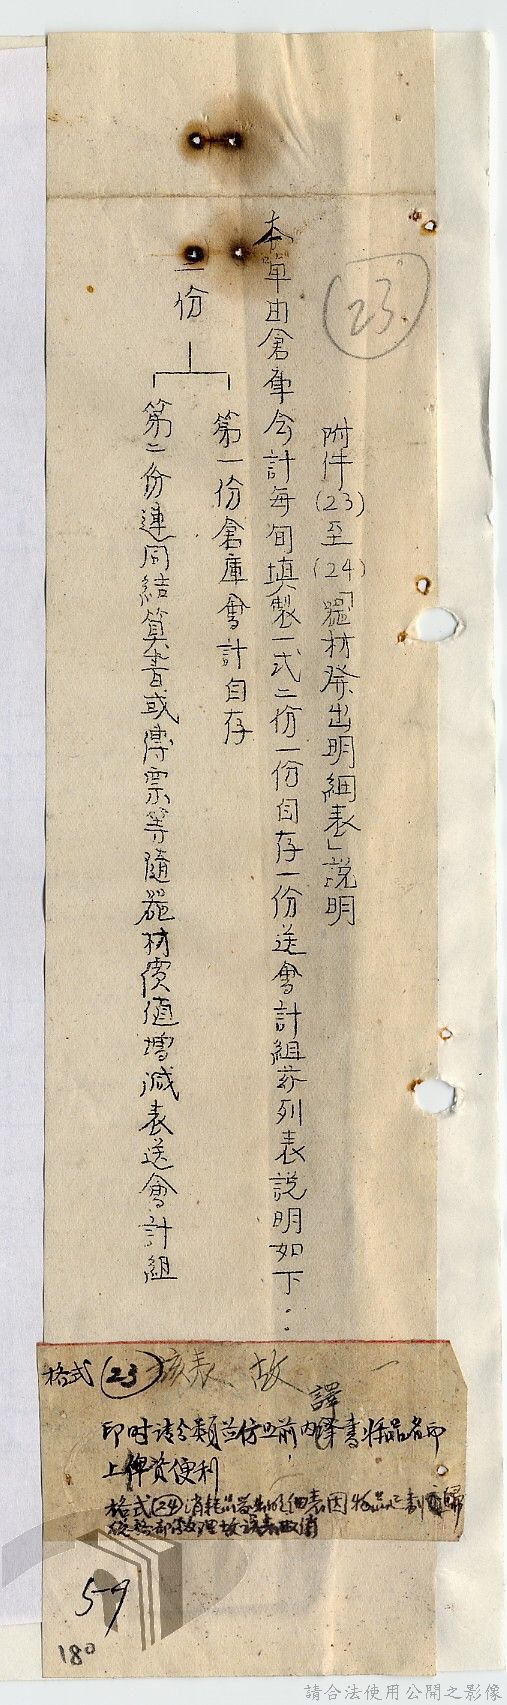 23.
附件(23)至(24)「器材發出明細表」說明
本單由倉庫会計每旬填製一式二份一份自存一份送會計組茲列表說明如下：
二份
第一份倉庫會計自存
第二份連同結算書或傳票等隨器材價值增減表送會計組
格式(23)該表、故
譯
印时請分類並仿照前內 書將品名印
上俾資便利
格式(24)消耗品發出明細表因物品 劃歸
59
180
請合法使用公開之影像